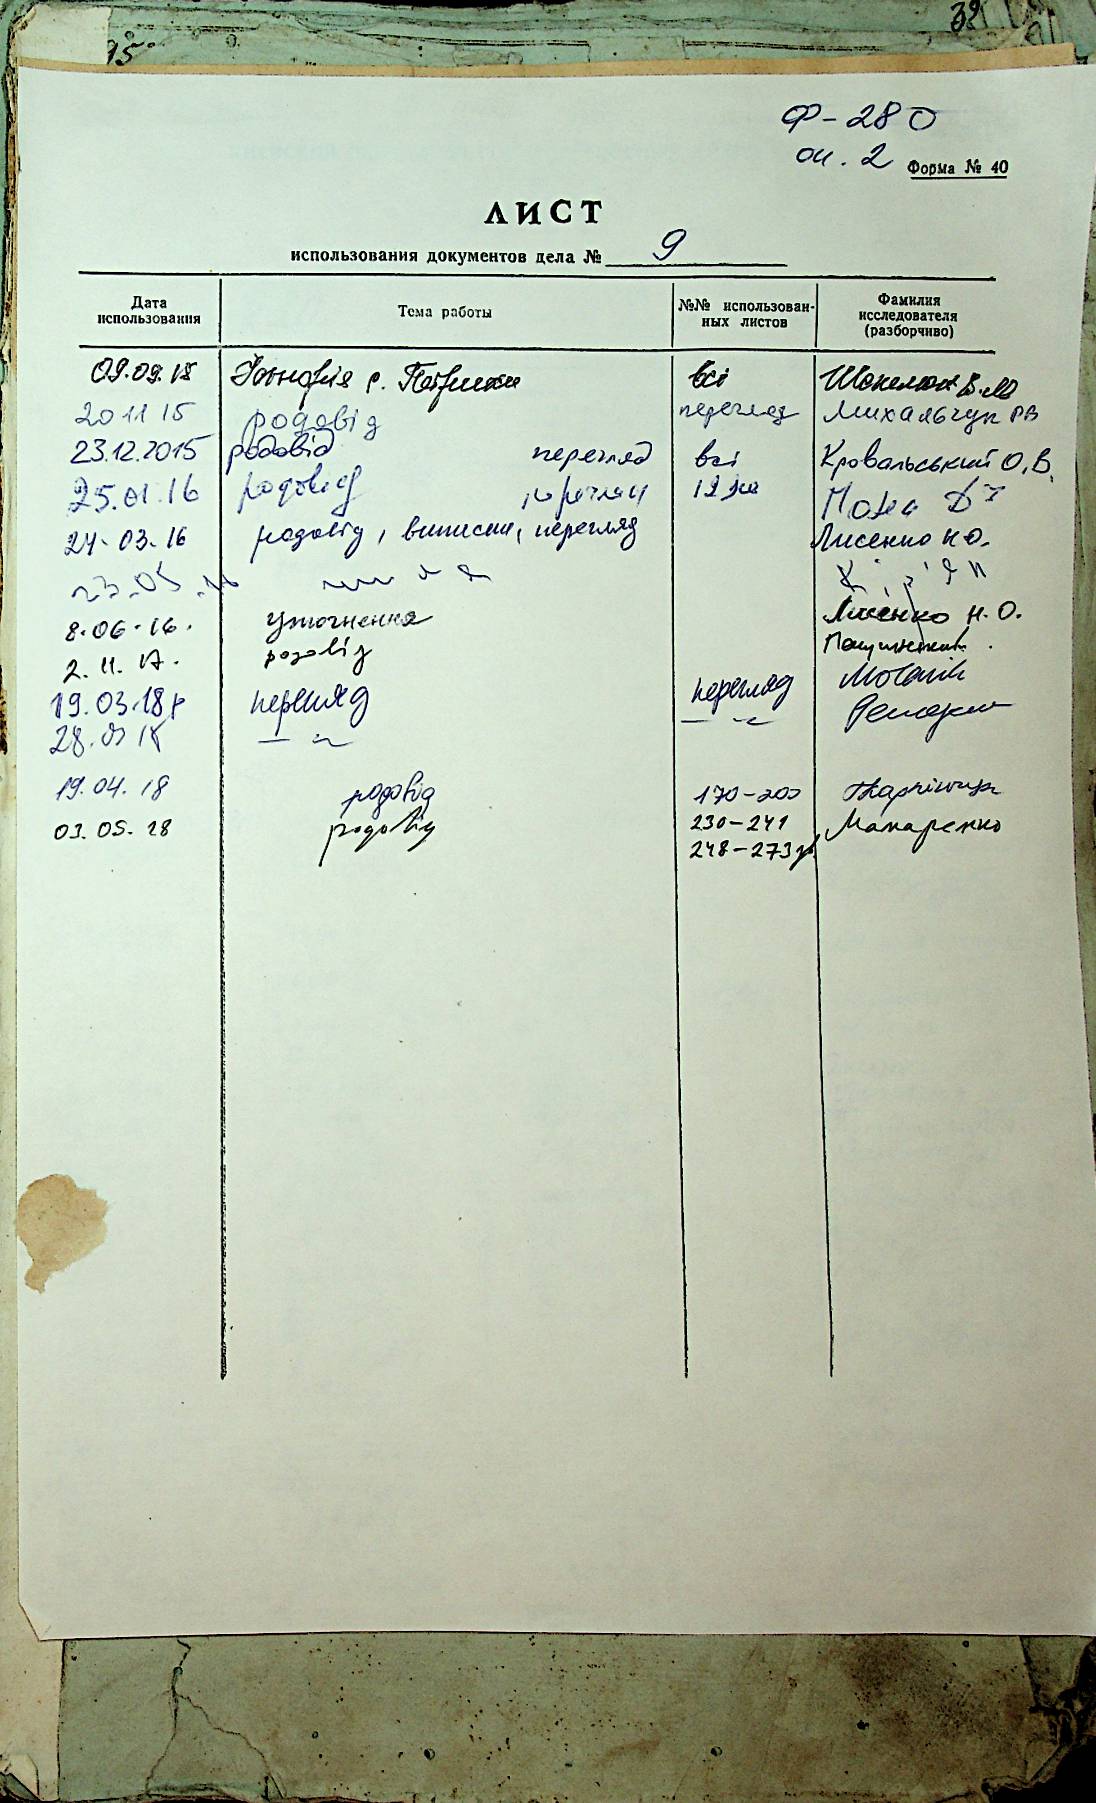 39
15
Ф-280
оп. 2
Форма № 40
ЛИСТ
использования документов дела № 9
Дата использования
Тема работы
№№ использован-
ных листов
Фамилия
исследователя
(разборчиво)
09.09.15 с. всі В.М.
20 11 15 родовід перегляд Михальчук РВ
23.12.2015 родовід перегляд всі Кровальський О.В.
25.01.16 родовід перегляд
24.03.16 родовід, виписки, перегляд Лисенко Н.О.
8.06.16. уточнення Лисенко Н.О.
2.11.17. родовід
19.03.18р перегляд перегляд
28.03 18 — " — — " —
19.04.18 родовід 170-200
03.05.18 родовід 230-241 Макаренко
248-273